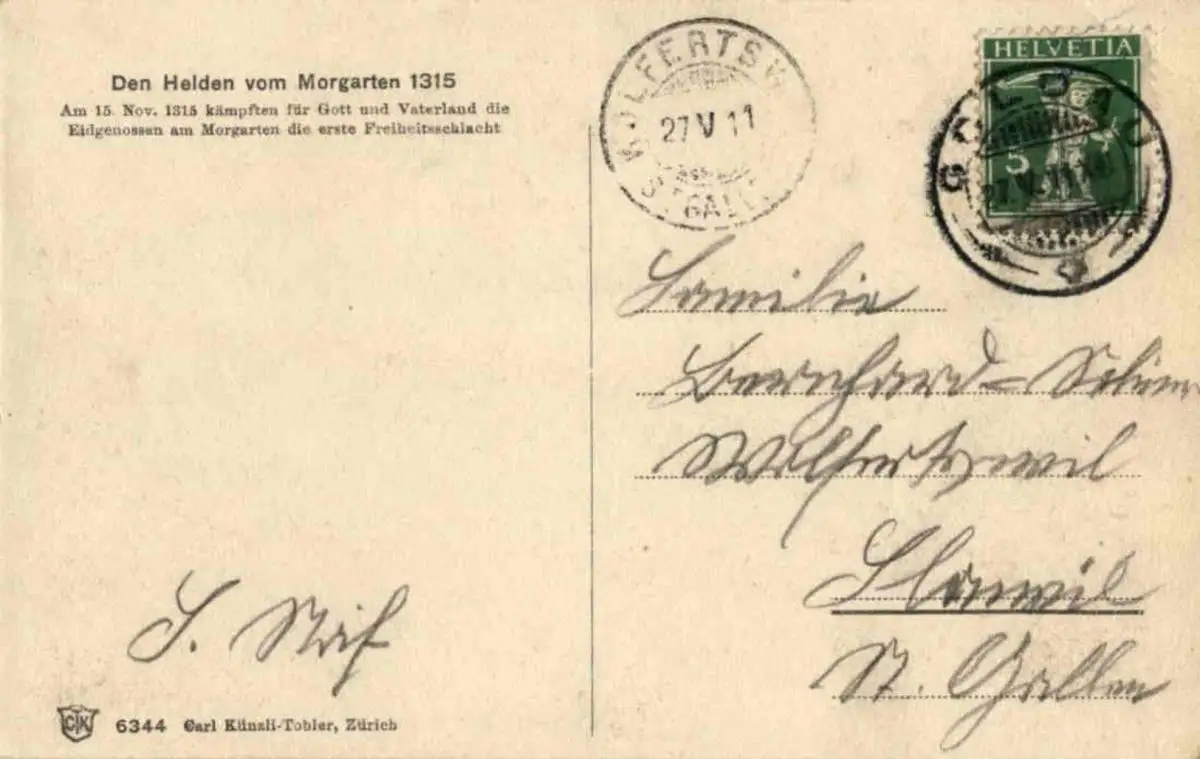 Den Helden vom Morgarten 1315
Am 15. Nov. 1315 kämpften für Gott und Vaterland die
Eidgenossen am Morgarten die erste Freiheitsschlacht
WOLFERTSW.
27 V 11
ST. GALL.
HELVETIA
5
GOLDAU
27.V.11
Familie
Bernhard=
Wolfertswil
Flawil
St. Gallen
S. Näf
CTK
6344 Carl Künzli-Tobler, Zürich